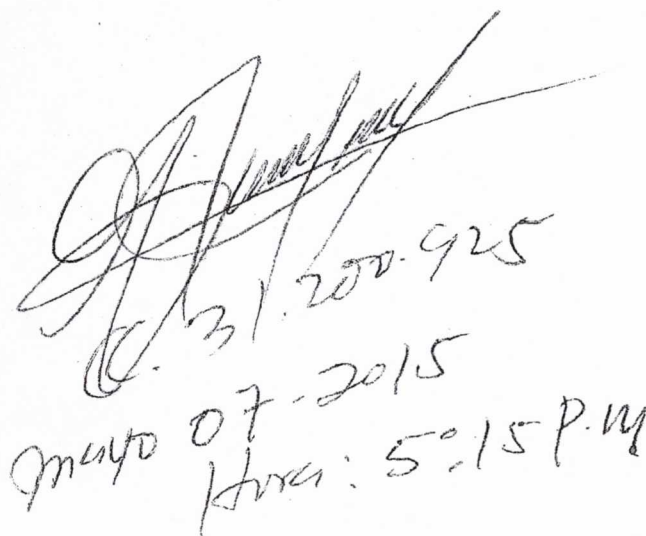 CC. 31.200.925
Mayo 07-2015
Hora: 5:15 P.M